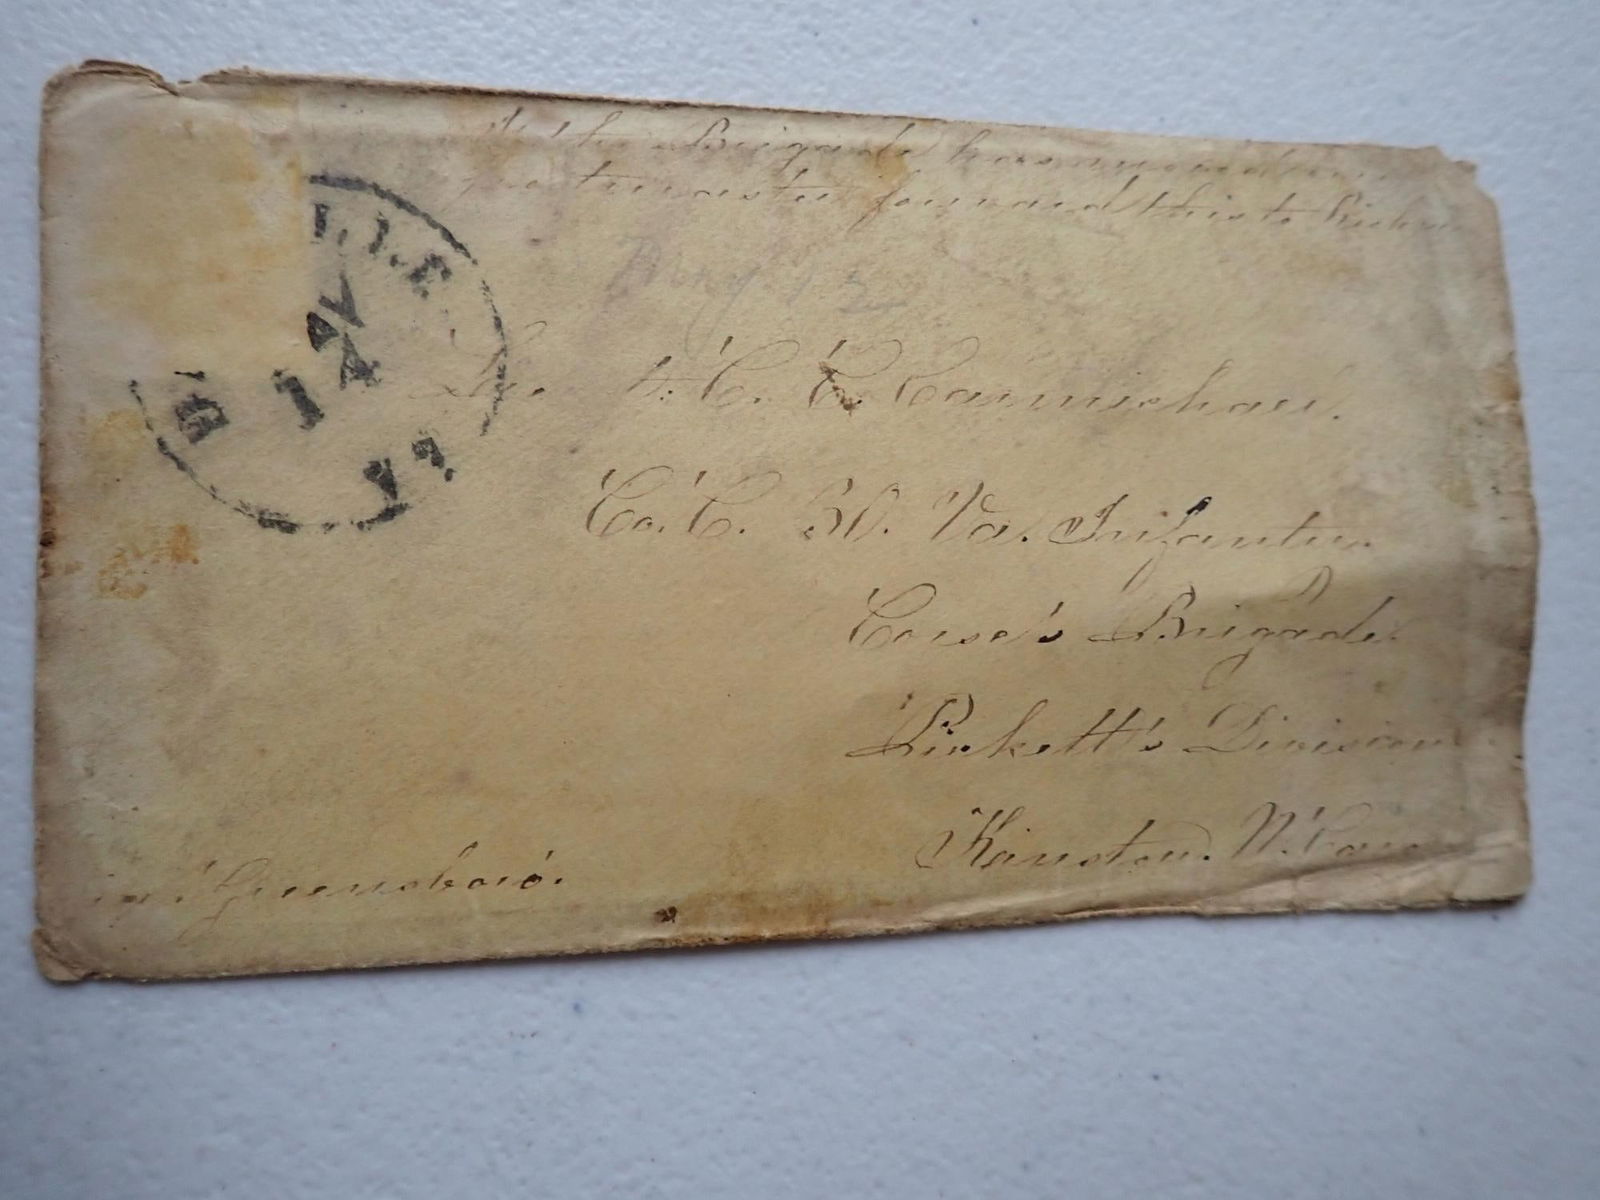 If the Brigade has moved
postmaster forward this to Richm
May 12
LLE
14
C. C. Carmichael.
Co. C. 30. Va. Infantry.
Corse's Brigade
Pickett's Division
Kinston. N. Car
Greensboro'.